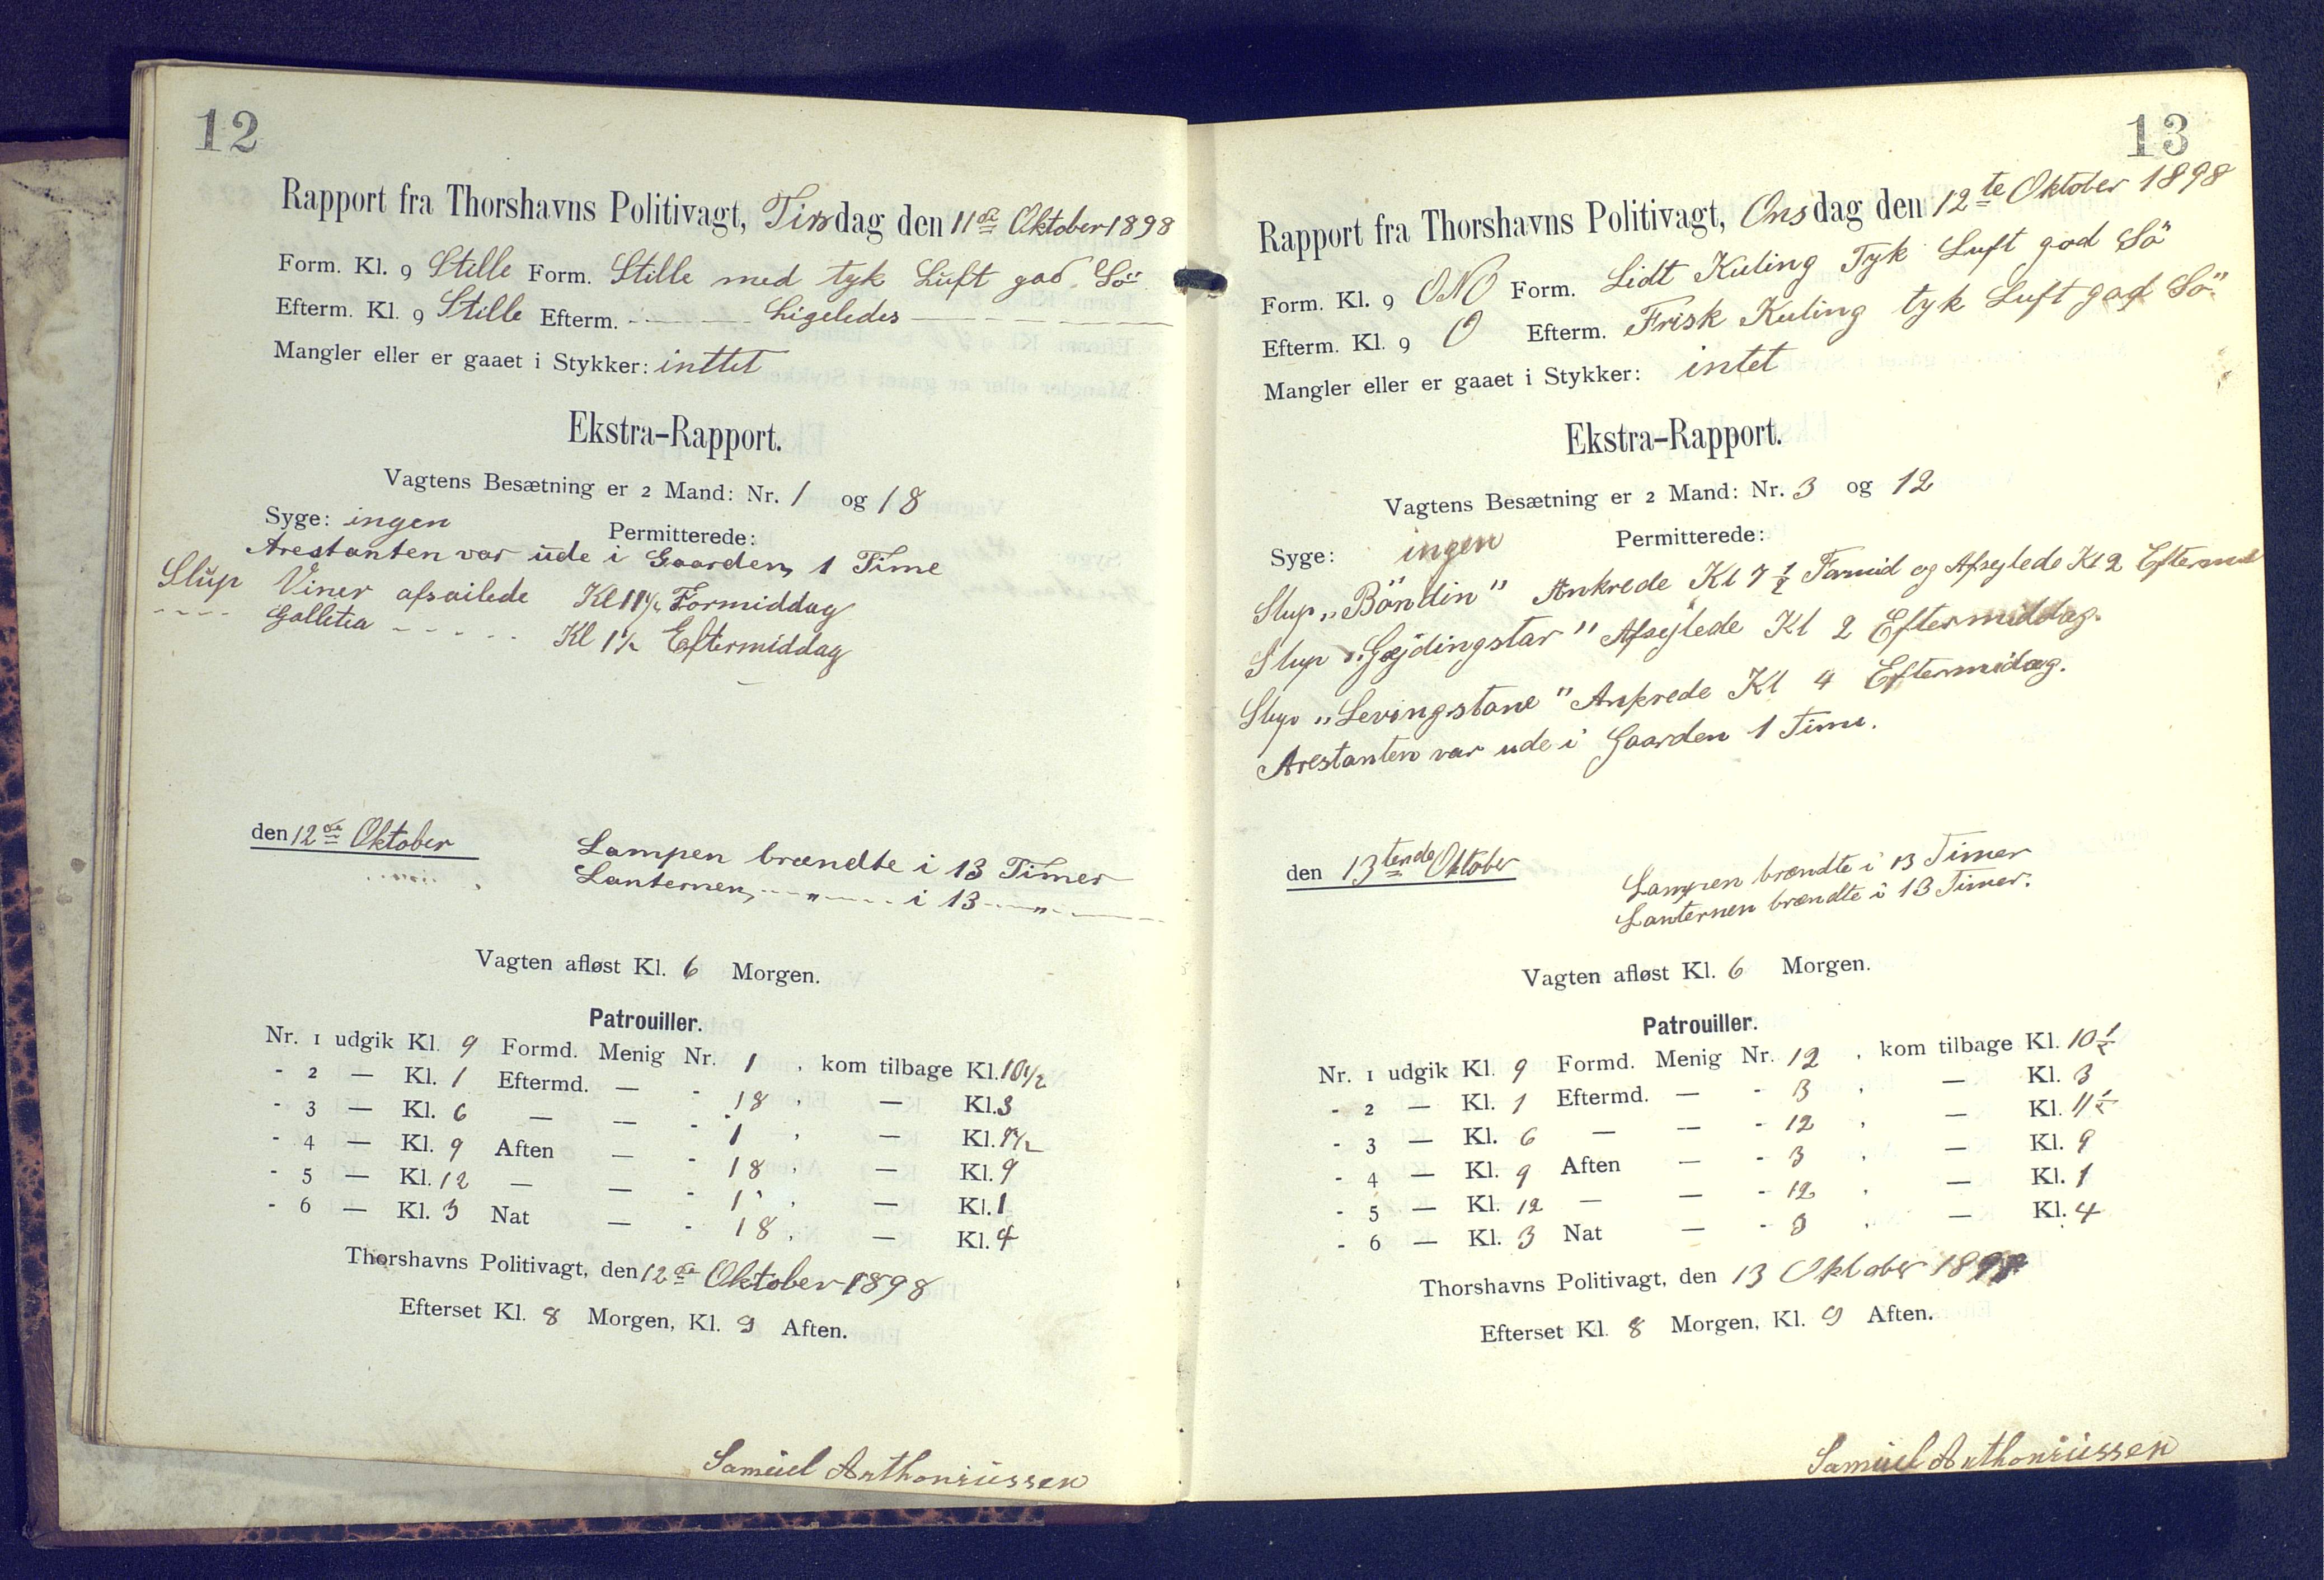 12
Rapport fra Thorshavns Politivagt, Tirsdag den 11te Oktober 1898
Form. Kl. 9 Stille Form. Stille med tyk Luft god Sö
Efterm. Kl. 9 Stille Efterm. — Ligeledes —
Mangler eller er gaaet i Stykker: inttet
Ekstra-Rapport.
Vagtens Besætning er 2 Mand: Nr. 1 og 18
Syge: ingen Permitterede:
Arestanten var ude i Gaarden, 1 Time
Slup Viner afsailede Kl 11½ Formiddag
---- Gallitia ----- Kl 1½ Eftermiddag
den 12te Oktober
Lampen brændte i 13 Timer
Lanternen, --- „ --- i 13 --- „ ---
Vagten afløst Kl. 6 Morgen.
Patrouiller.
Nr. 1 udgik Kl. 9 Formd. Menig Nr. 1 , kom tilbage Kl. 10½
- 2 — Kl. 1 Eftermd. — - 18 , — Kl. 3
- 3 — Kl. 6 — — - 1 , — Kl.
- 4 — Kl. 9 Aften — - 18 , — Kl. 9
- 5 — Kl. 12 — — - 1 , — Kl. 1
- 6 — Kl. 3 Nat — - 18 , — Kl. 4
Thorshavns Politivagt, den 12te Oktober 1898
Efterset Kl. 8 Morgen, Kl. 9 Aften.
Samuel Anthoniussen
13
Rapport fra Thorshavns Politivagt, Onsdag den 12te Oktober 1898
Form. Kl. 9 ONO Form. Lidt Kuling Tyk Luft god Sö
Efterm. Kl. 9 O Efterm. Frisk Kuling tyk Luft god Sö
Mangler eller er gaaet i Stykker: intet
Ekstra-Rapport.
Vagtens Besætning er 2 Mand: Nr. 3 og 12
Syge: ingen Permitterede:
Slup „Böndin" Ankrede Kl 7½ Formid og Afsejlede Kl 2 Eftermid
Slup „Gøjdingstar" Afsejlede Kl 2 Eftermiddag.
Slup „Levingstone" Ankrede Kl 4 Eftermidag.
Arestanten var ude i Gaarden 1 Time.
den 13tende Oktober
Lampen brændte i 13 Timer
Lanternen brændte i 13 Timer.
Vagten afløst Kl. 6 Morgen.
Patrouiller.
Nr. 1 udgik Kl. 9 Formd. Menig Nr. 12 , kom tilbage Kl. 10½
- 2 — Kl. 1 Eftermd. — - 3 , — Kl. 3
- 3 — Kl. 6 — — - 12 , — Kl. 11½
- 4 — Kl. 9 Aften — - 3 , — Kl. 9
- 5 — Kl. 12 — — - 12 , — Kl. 1
- 6 — Kl. 3 Nat — - 3 , — Kl. 4
Thorshavns Politivagt, den 13 Oktober 1898
Efterset Kl. 8 Morgen, Kl. 9 Aften.
Samuel Anthoniussen